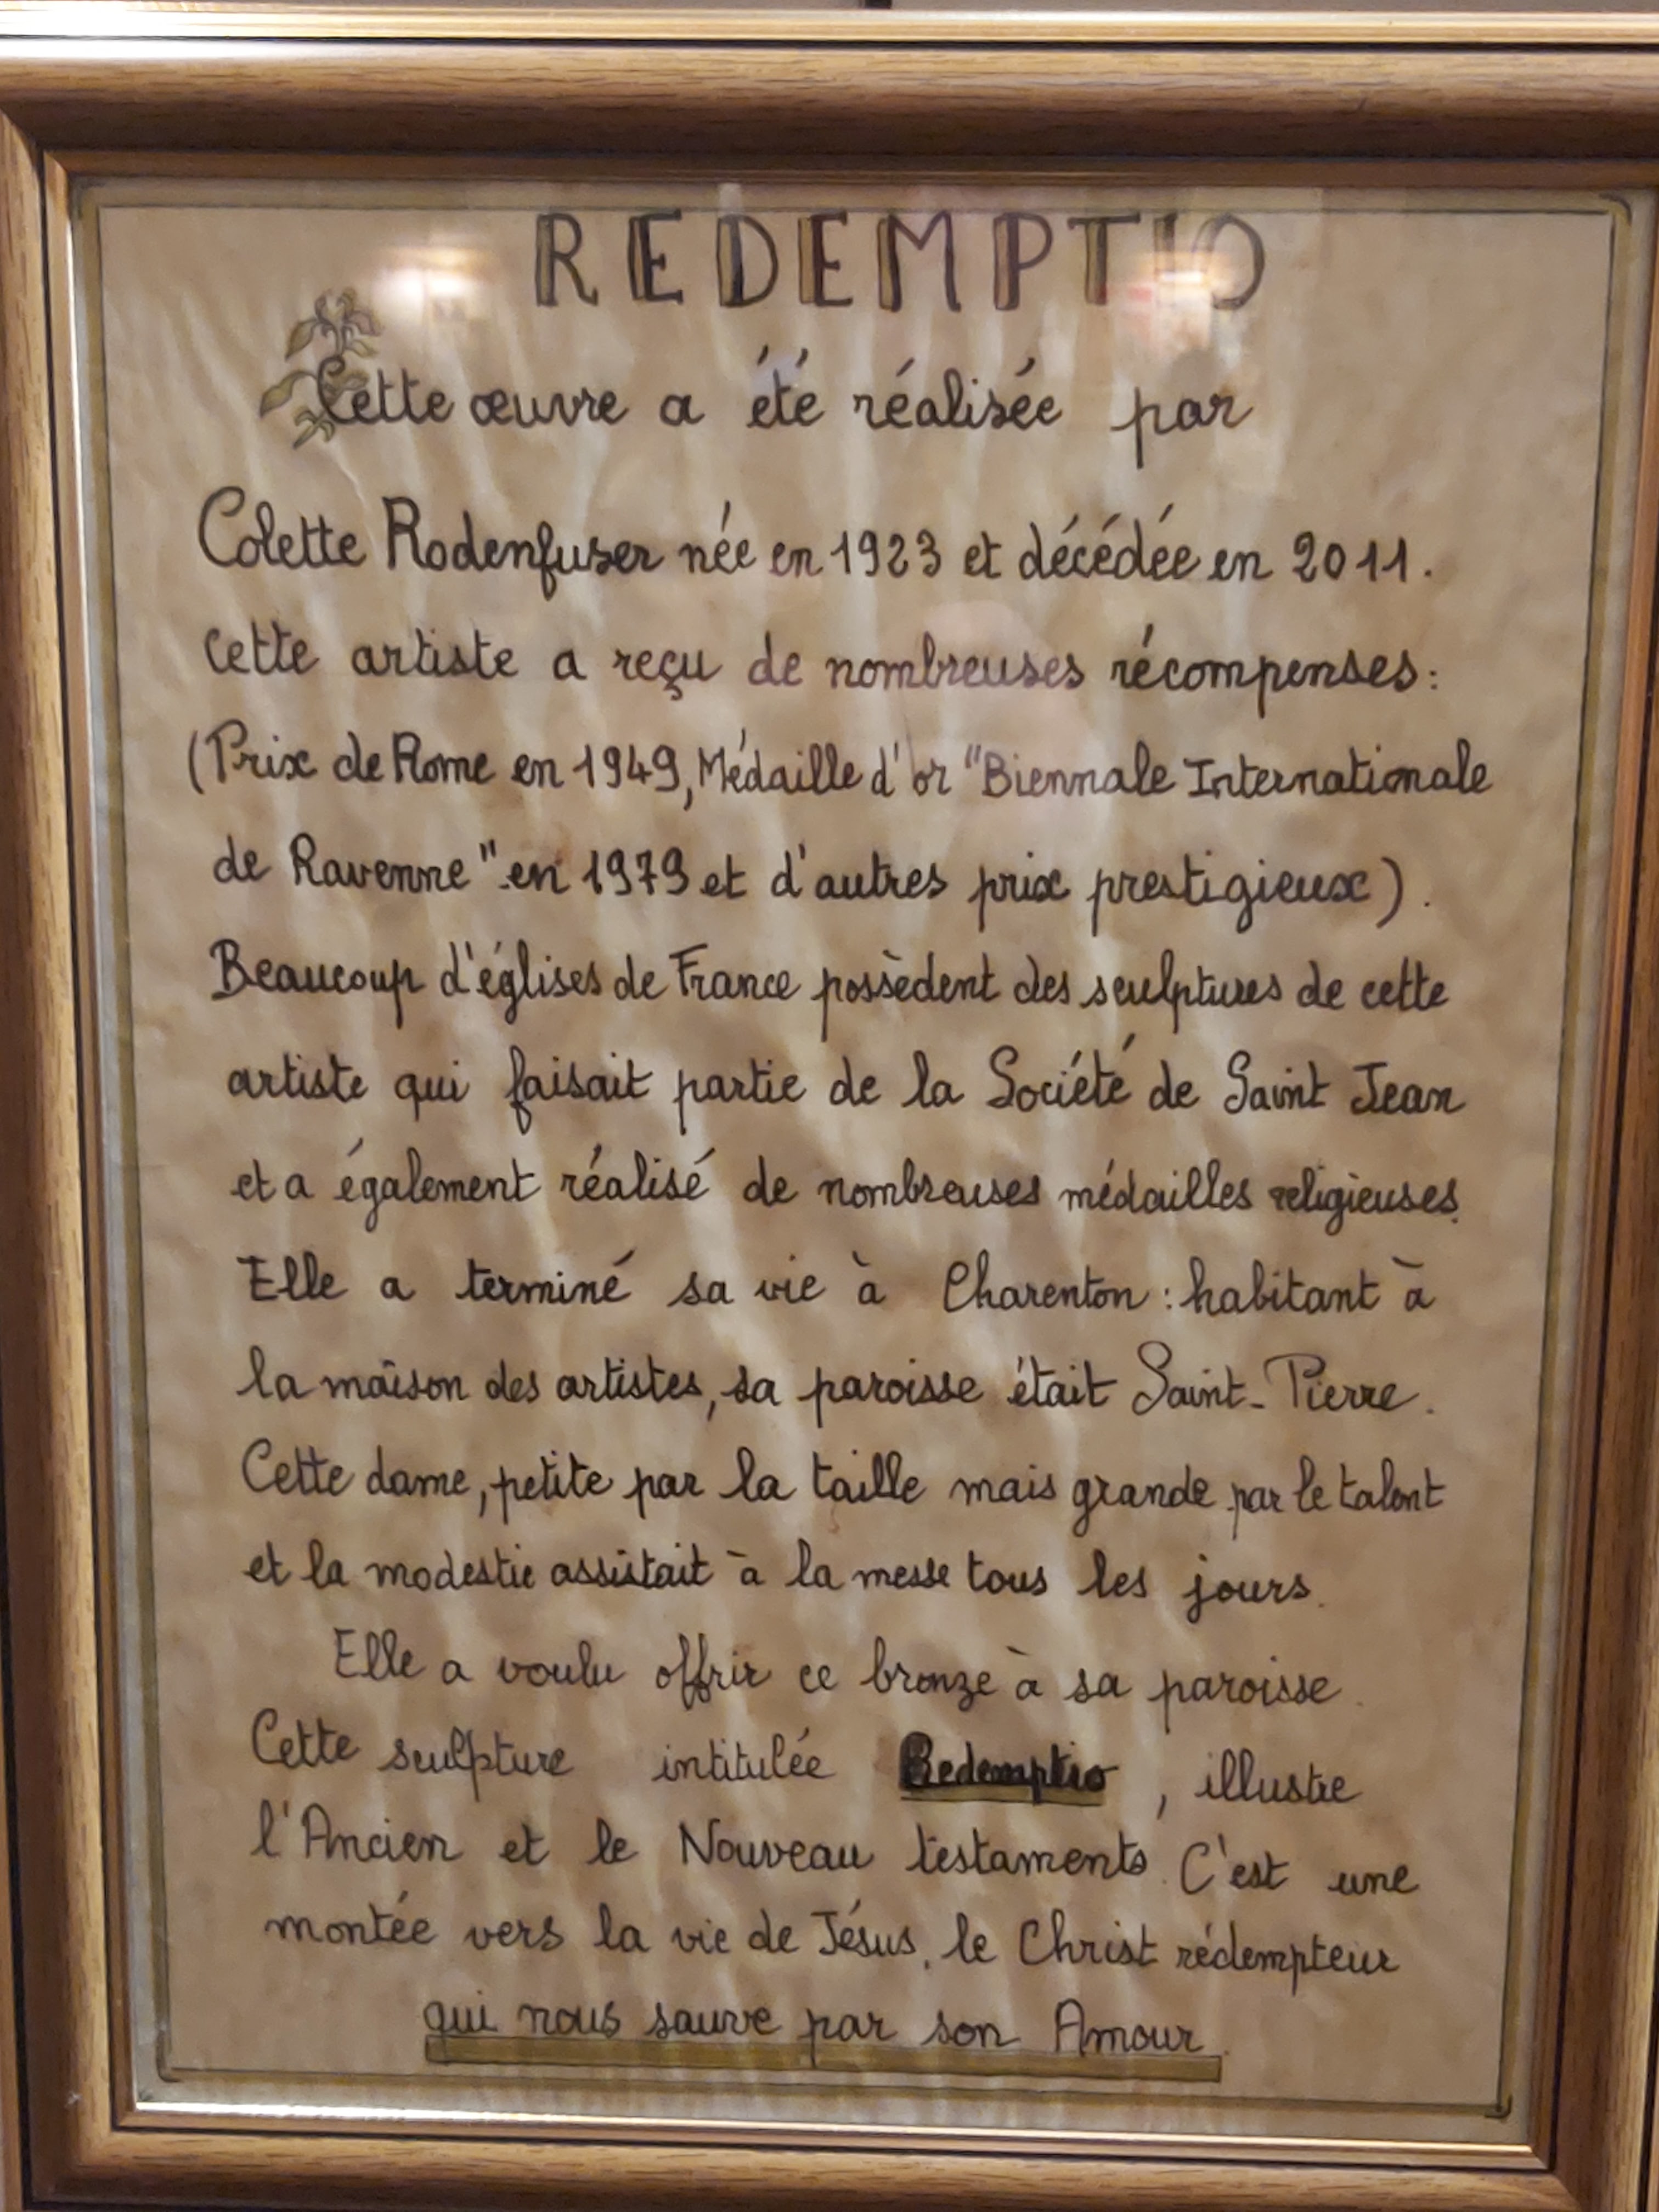 REDEMPTIO
Cette œuvre a été réalisée par
Colette Rodenfuser née en 1923 et décédée en 2011.
cette artiste a reçu de nombreuses récompenses:
(Prix de Rome en 1949, Médaille d'or "Biennale Internationale
de Ravenne" en 1979 et d'autres prix prestigieux).
Beaucoup d'églises de France possèdent des sculptures de cette
artiste qui faisait partie de la Société de Saint Jean
et a également réalisé de nombreuses médailles religieuses.
Elle a terminé sa vie à Charenton : habitant à
la maison des artistes, sa paroisse était Saint-Pierre.
Cette dame, petite par la taille mais grande par le talent
et la modestie assistait à la messe tous les jours.
Elle a voulu offrir ce bronze à sa paroisse.
Cette sculpture intitulée Redemptio, illustre
l'Ancien et le Nouveau testaments. C'est une
montée vers la vie de Jésus, le Christ rédempteur
qui nous sauve par son Amour.